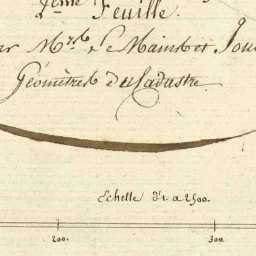 2ème Feuille.
Mrs Le Mains et
Géomètres du Cadastre.
Echelle d'1 a 2500.
200. 300.